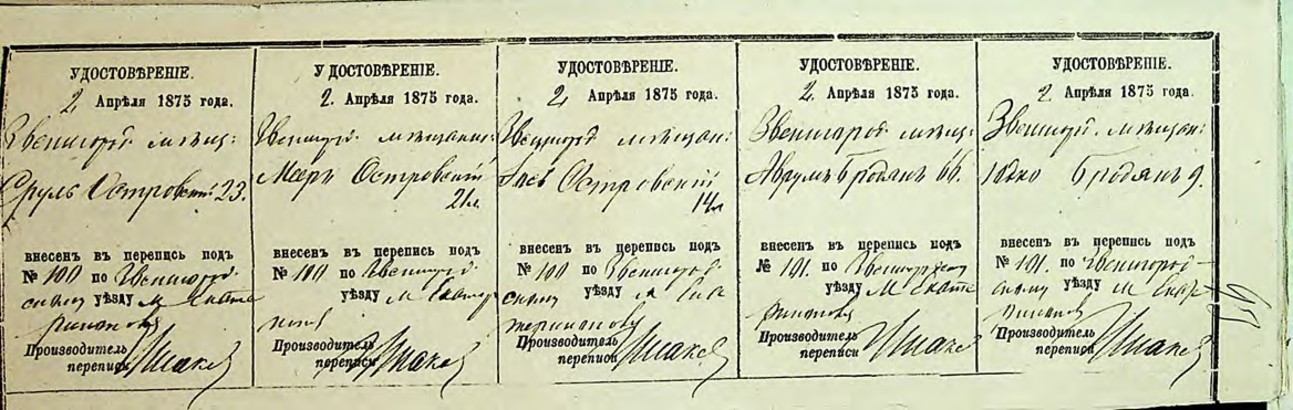 УДОСТОВѢРЕНІЕ.
2. Апрѣля 1875 года.
Звенигород мѣщ:
Сруль Островскій 23.
внесенъ въ перепись подъ
№ 100 по Звенигород
скому уѣзду м Екате
ринополь
Производитель
переписи
УДОСТОВѢРЕНІЕ.
2. Апрѣля 1875 года.
Звенигород мѣщанин:
Мееръ Островскій
21 л
внесенъ въ перепись подъ
№ 100 по Звенигород
уѣзду м Екатер
Производитель
переписи
УДОСТОВѢРЕНІЕ.
2. Апрѣля 1875 года.
Звенигород мѣщан:
Островскій
14 л
внесенъ въ перепись подъ
№ 100 по Звенигород
скому уѣзду м Ека
Производитель
переписи
УДОСТОВѢРЕНІЕ.
2. Апрѣля 1875 года.
Звенигород мѣщ:
Аврумъ Бродянъ 66.
внесенъ въ перепись подъ
№ 101. по
уѣзду м Екате
Производитель
переписи
УДОСТОВѢРЕНІЕ.
2 Апрѣля 1875 года.
Звенигор. мѣщан:
Юдко Бродянъ 9.
внесенъ въ перепись подъ
№ 101. по Звенигород-
скому уѣзду м Екат
Производитель
переписи